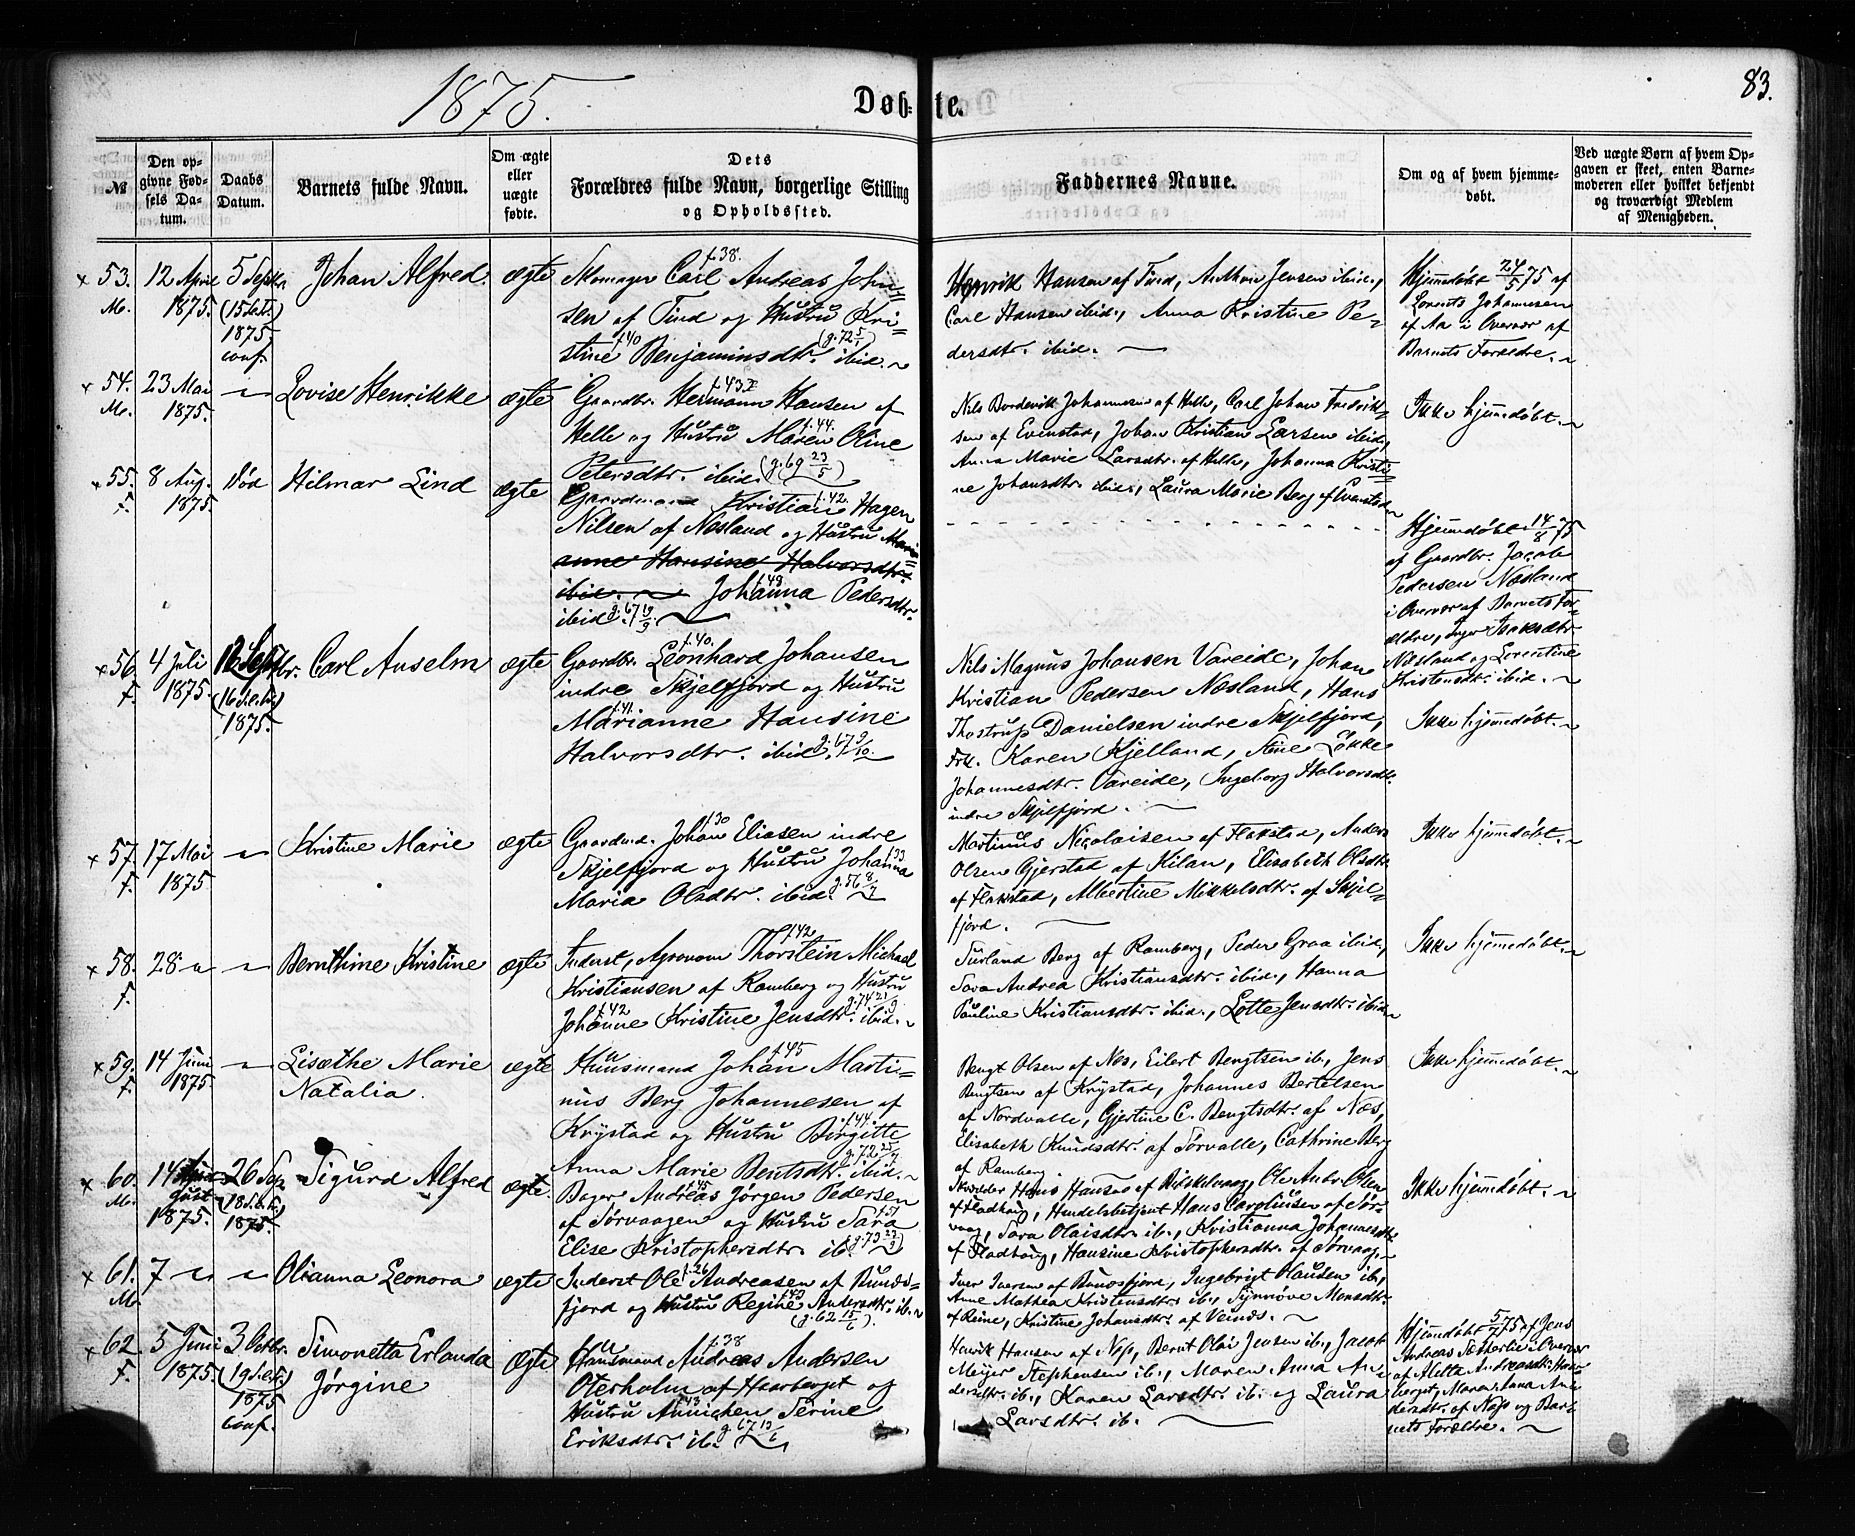 1875.
Døb-te.
83.
№
Den opgivne Fødsels Datum.
Daabs Datum.
Barnets fulde Navn.
Om ægte eller uægte fødte.
Dets
Forældres fulde Navn, borgerlige Stilling
og Opholdssted.
Faddernes Navne.
Om og af hvem hjemmedøbt.
Ved uægte Børn af hvem Opgaven er skeet, enten Barnemoderen eller hvilket bekjendt og troværdigt Medlem af Menigheden.
× 53. M.
12 April 1875.
5 Septbr. (15 s.e.t.) 1875 conf.
Johan Alfred.
ægte
Skomager Carl f.38. Andreas John=
sen af Sund og Hustru Kri=
stine f.40 Benjaminsdtr. ibid. (g. 72 5/1)
Henrik Hansen af Sund, Anthon Jensen ibid.,
Carl Hansen ibid., Anna Kristine Pe=
dersdtr. ibid.
Hjemmedøbt 24/5 75 af
Lorents Johannesen
af Aa i Overvær af
Barnets Forældre.
× 54. M.
23 Mai 1875.
Lovise Henrikke
ægte
Gaardbr. Hermann f.43 Hansen af
Helle og Hustru Maren f.44. Oline
Petersdtr. ibid. (g. 69 23/5)
Nils Bordevik Johannesen af Helle, Carl Johan Fredrik=
sen af Evenstad, Johan Kristian Larsen ibid.,
Anna Marie Larsdtr. af Helle, Johanna Kristi=
ne Johansdtr. ibid., Laura Marie Berg af Evenstad
Ikke hjemmedøbt.
× 55. F.
8 Aug. 1875.
Død
Hilmar Lind
ægte
Gaardmand Kristian f.42. Hagen
Nilsen af Næsland og Hustru Mari=
anne Hansine Halvorsdtr.
ibid. Johanna f.49 Pedersdtr.
ibid. g. 67 19/9
Hjemmedøbt 14/8 75
af Gaardbr. Jacob
Pedersen Næsland
i Overvær af Barnets For=
ældre, Inger Isaksdtr.
Næsland og Lorentine
Kristensdtr. ibid.
× 56. F.
4 Juli 1875.
12 Septbr. (16 s.e.t.) 1875.
Carl Anselm
ægte
Gaardbr. Leonhard f.40. Johansen
indre Skjelfjord og Hustru
Marianne f.41. Hansine
Halvorsdtr. ibid. g. 67 9/10.
Nils Magnus Johansen Vareide, Johan
Kristian Pedersen Næsland, Hans
Thostrup Danielsen indre Skjelfjord,
Frk. Karen Kjelland, Stine Løkke
Johannesdtr. Vareide, Ingeborg Halvorsdtr.
indre Skjelfjord.
Ikke hjemmedøbt.
× 57. F.
17 Mai 1875
Kristine Marie
ægte
Gaardmd. Johan f.30 Eliasen indre
Skjelfjord og Hustru Johanna f.33
Maria Olsdtr. ibid. g. 56 8/7
Martinus Nicolaisen af Flakstad, Anders
Olsen Gjerstad af Kilan, Elisabeth Olsdtr.
af Flakstad, Albertine Mikkelsdtr. af Skjel=
fjord.
Ikke hjemmedøbt.
× 58. F.
28
Bernthine Kristine
ægte
Inderst, Agronom Thorstein f.42 Michael
Kristiansen af Ramberg og Hustru
Johanne f.42 Kristine Jensdtr. ibid. g. 74 21/9
Turland Berg af Ramberg, Peder Graa ibid.,
Sara Andrea Kristiansdtr. ibid., Hanna
Pauline Kristiansdtr. ibid., Lotte Jensdtr. ibid.
Ikke hjemmedøbt.
× 59. F.
14 Juni 1875
Lisæthe Marie
Natalia.
ægte
Huusmand Johan f.45 Marti=
nus Berg Johannesen af
Krystad og Hustru Birgitte f.44
Anna Marie Bentsdtr. ibid. g. 72 25/7
Bengt Olsen af Næs, Eilert Bengtsen ib., Jens
Bengtsen af Krystad, Johannes Bertelsen
af Nordvalle, Gjertine C. Bengtsdtr. af Næs,
Elisabeth Knudsdtr. af Sørvalle, Cathrine Berg
af Ramberg.
Ikke hjemmedøbt.
× 60. M.
14 August 1875.
26 Sep. (18 s.e.t.) 1875.
Sigurd Alfred
ægte.
Bager Andreas f.45 Jørgen Pedersen
af Sørvaagen og Hustru Sara f.51
Elise Kristophersdtr. ib. g. 73 23/9
Skrædder Hans Hansen af, Ole Andr. Olsen
af Fladhaug, Handelsbetjent Hans Carolinsen af Sør=
vaag, Sara Olaisdtr. ib., Kristianna Johannesdtr.
af Fladhaug, Hansine Kristophersdtr. af Sørvaag.
Ikke hjemmedøbt.
× 61. M.
7
Olianna Leonora
ægte
Inderst Ole f.26 Andreasen af Bunæs=
fjord og Hustru Regine f.43 Andersdtr. ib.
(g. 62 15/6).
Iver Iversen af Bunæsfjord, Ingebrigt Olausen ib.,
Anne Mathea Kristensdtr. ib., Synnøve Monsdtr.
af Reine, Kristine Johansdtr. af Veinæs.
× 62. F.
5 Juni 1875.
3 Octbr. (19 s.e.t.) 1875 conf.
Simonetta Erlanda
Jørgine
Ægte
Huusmand Andreas f.38 Andersen
Oterholm af Haarberget og
Hustru Annichen f.43 Serine
Eriksdtr. ib. g. 67 13/6
Henrik Hansen af Næs, Bernt Olai Jensen ib., Jacob
Meyer Stephensen ib., Maren Anna An=
dersdtr. ib., Karen Larsdtr. ib. og Laura
Larsdtr. ib.
Hjemmedøbt 5/7 75 af Jens
Andreas Sætherlie i Overvær
af Mette Andreasdtr. Haar=
berget, Maren Anna An=
dersdtr. af Næs og Bar=
nets Forældre.